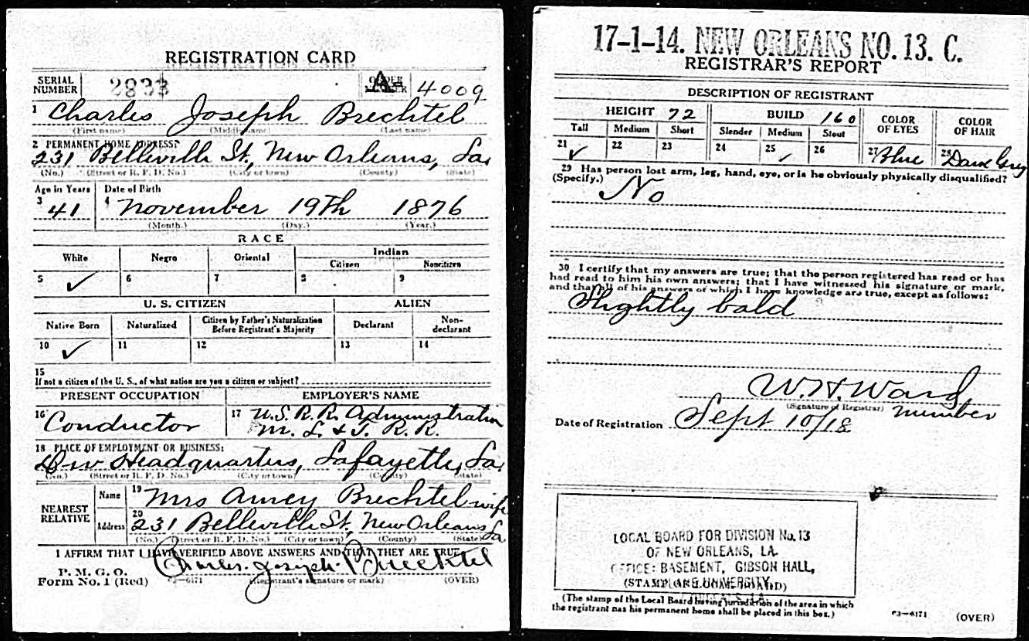 REGISTRATION CARD
SERIAL NUMBER 2833 A 4009
1 Charles Joseph Brechtel
(First name) (Middle name) (Last name)
2 PERMANENT HOME ADDRESS:
231 Belleville St, New Orleans, La
(No.) (Street or R. F. D. No.) (City or town) (County) (State)
Age in Years Date of Birth
3 41 4 November 19th 1876
(Month.) (Day.) (Year.)
RACE
White Negro Oriental Indian
Citizen Noncitizen
5 ✓ 6 7 8 9
U. S. CITIZEN ALIEN
Native Born Naturalized Citizen by Father's Naturalization Before Registrant's Majority Declarant Non-declarant
10 ✓ 11 12 13 14
15
If not a citizen of the U. S., of what nation are you a citizen or subject?
PRESENT OCCUPATION EMPLOYER'S NAME
16 Conductor 17 U.S. R.R. Administration
M. L. & T. R. R.
18 PLACE OF EMPLOYMENT OR BUSINESS:
Div Headquarters, Lafayette, La,
(No.) (Street or R. F. D. No.) (City or town) (County) (State)
NEAREST RELATIVE
Name 19 Mrs Amey Brechtel wife
Address 20 231 Belleville St. New Orleans La
(No.) (Street or R. F. D. No.) (City or town) (County) (State)
I AFFIRM THAT I HAVE VERIFIED ABOVE ANSWERS AND THAT THEY ARE TRUE
P. M. G. O.
Form No. 1 (Red)
Charles Joseph Brechtel
(Registrant's signature or mark) (OVER)
17-1-14. NEW ORLEANS NO. 13. C.
REGISTRAR'S REPORT
DESCRIPTION OF REGISTRANT
HEIGHT 72 BUILD 160 COLOR OF EYES COLOR OF HAIR
Tall Medium Short Slender Medium Stout
21 ✓ 22 23 24 25 ✓ 26 27 Blue 28 Dark Grey
29 Has person lost arm, leg, hand, eye, or is he obviously physically disqualified?
(Specify.) No
30 I certify that my answers are true; that the person registered has read or has
had read to him his own answers; that I have witnessed his signature or mark,
and that all of his answers of which I have knowledge are true, except as follows:
Slightly bald
W. H. Ward
(Signature of Registrar) number
Date of Registration Sept 10/18
LOCAL BOARD FOR DIVISION No. 13
OF NEW ORLEANS, LA.
OFFICE: BASEMENT, GIBSON HALL,
UNIVERSITY,
(The stamp of the Local Board having jurisdiction of the area in which
the registrant has his permanent home shall be placed in this box.)
03—6171 (OVER)